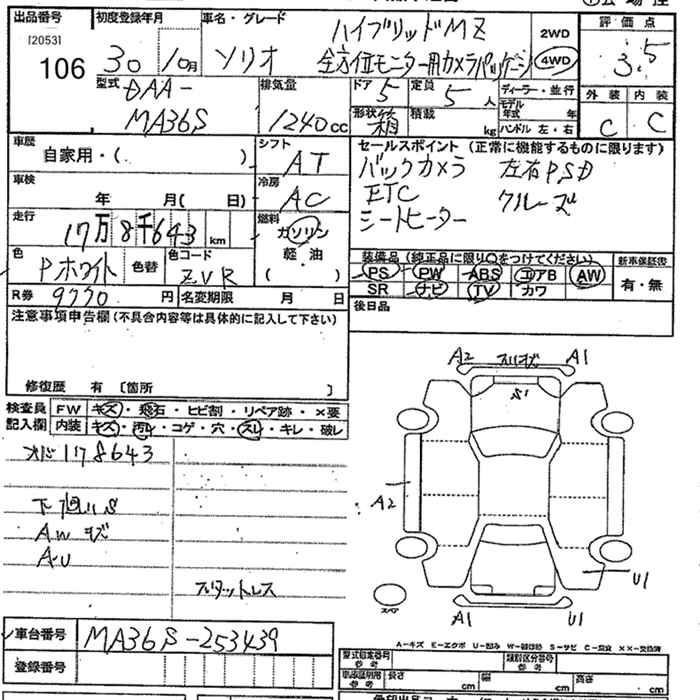 出品番号 初度登録年月 車名・グレード
[2053] 106 30 10月 ソリオ
ハイブリッドMZ
全方位モニター用カメラパッケージ
2WD
4WD
評価点
3.5
外装 内装
C C
型式 DAA-
MA36S
排気量
1240cc
ドア 5 定員 5 人
形状 箱 積載 kg
ディーラー・並行
モデル年式 年
ハンドル 左・右
車歴
自家用・( )
シフト
AT
車検
年 月( 日)
冷房
AC
走行
17万8千643km
燃料
ガソリン
軽・油
( )
色 Pホワイト 色替 色コード ZVR
R券 9770 円 名変期限 月 日
セールスポイント (正常に機能するものに限ります)
バックカメラ 左右PSD
ETC クルーズ
シートヒーター
装備品(純正品に限り○をつけてください) 新車保証書
PS PW ABS エアB AW 有・無
SR ナビ TV カワ
後日品
注意事項申告欄(不具合内容等は具体的に記入して下さい)
修復歴 有 〔箇所 〕
検査員 FW キズ・飛石・ヒビ割・リペア跡・×要
記入欄 内装 キズ・汚レ・コゲ・穴・スレ・キレ・破レ
178643
下廻りS
AWキズ
A・U
スタットレス
A2 A1
S1
A2
U1
スペア
A1 U1
A-キズ E-エクボ U-凹み W-補修跡 S-サビ C-腐食 ××-交換済
車台番号 MA36S-253439
登録番号
型式指定番号 参考 類別区分番号 参考
長さ cm 幅 cm 高さ cm